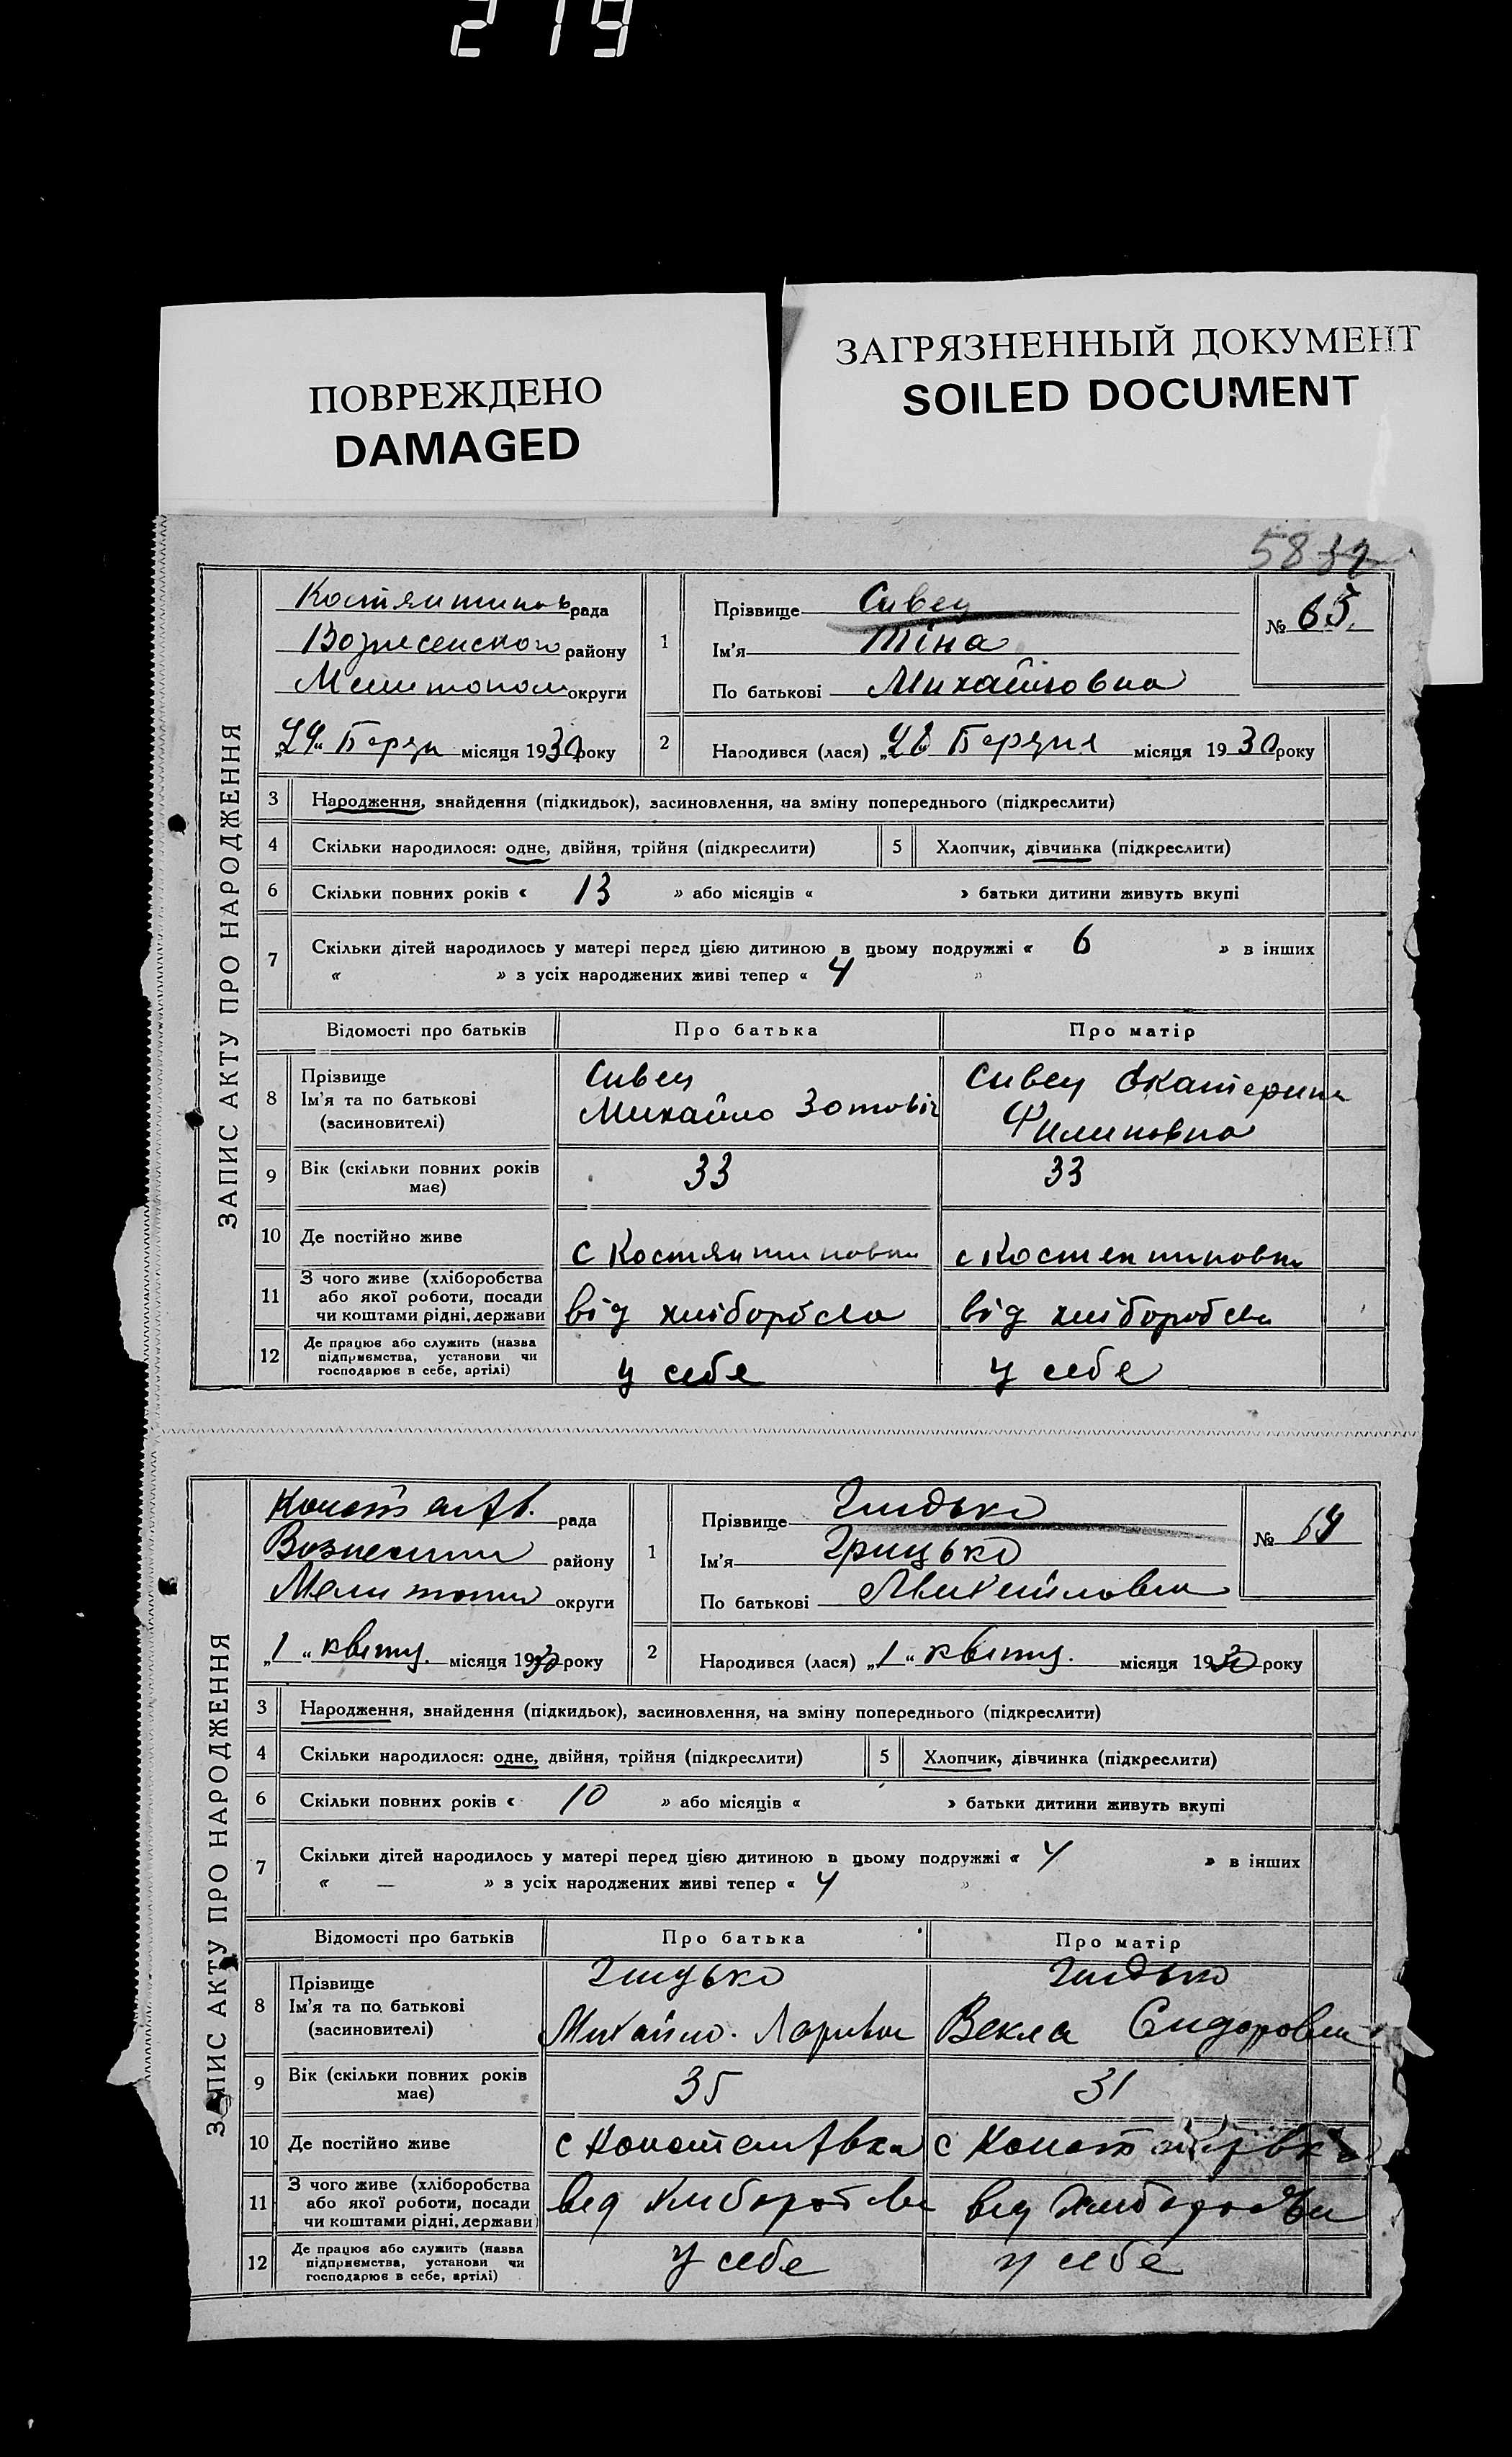 219
ПОВРЕЖДЕНО
DAMAGED
ЗАГРЯЗНЕННЫЙ ДОКУМЕНТ
SOILED DOCUMENT
58
ЗАПИС АКТУ ПРО НАРОДЖЕННЯ
Костянтинов рада
Вознесенского району
Мелитопол округи
місяця 1930 року
1
Прізвище Сивец
Ім'я Тіна
По батькові Михайловна
№ 65.
2
Народився (лася) Березня місяця 1930 року
3 Народження, знайдення (підкидьок), засиновлення, на зміну попереднього (підкреслити)
4 Скільки народилося: одне, двійня, трійня (підкреслити) 5 Хлопчик, дівчинка (підкреслити)
6 Скільки повних років « 13 » або місяців « » батьки дитини живуть вкупі
7 Скільки дітей народилось у матері перед цією дитиною в цьому подружжі « 6 » в інших
« » з усіх народжених живі тепер « 4 »
Відомості про батьків Про батька Про матір
8 Прізвище
Ім'я та по батькові
(засновителі)
Сивец
Михайло Зотовіч
Сивец Екатерина
Филиповна
9 Вік (скільки повних років
має)
33 33
10 Де постійно живе с Костянтиновка с Костентиновка
11 З чого живе (хліборобства
або якої роботи, посади
чи коштами рідні, держави
від хліборобсва від хліборобсва
12 Де працює або служить (назва
підприємства, установи чи
господарює в себе, артілі)
у себе у себе
ЗАПИС АКТУ ПРО НАРОДЖЕННЯ
рада
району
округи
„1“ квітц. місяця 1930 року
1
Прізвище
Ім'я Грицько
По батькові
№
2
Народився (лася) „1“ квітц. місяця 1930 року
3 Народження, знайдення (підкидьок), засиновлення, на зміну попереднього (підкреслити)
4 Скільки народилося: одне, двійня, трійня (підкреслити) 5 Хлопчик, дівчинка (підкреслити)
6 Скільки повних років « 10 » або місяців « » батьки дитини живуть вкупі
7 Скільки дітей народилось у матері перед цією дитиною в цьому подружжі « 4 » в інших
« — » з усіх народжених живі тепер « 4 »
Відомості про батьків Про батька Про матір
8 Прізвище
Ім'я та по батькові
(засиновителі)
Михайло.
Векла Сидоровна
9 Вік (скільки повних років
має)
35 31
10 Де постійно живе
11 З чого живе (хліборобства
або якої роботи, посади
чи коштами рідні, держави)
12 Де працює або служить (назва
підприємства, установи чи
господарює в себе, артілі)
у себе у себе